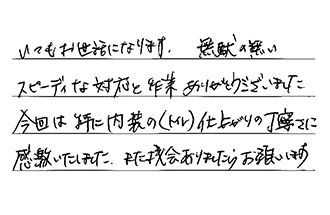 いつもお世話になります。 無駄の無い
スピーディな対応と作業ありがとうございました
今回は特に内装の(トイレ)仕上がりの丁寧さに
感激いたしました。また機会ありましたらお願います